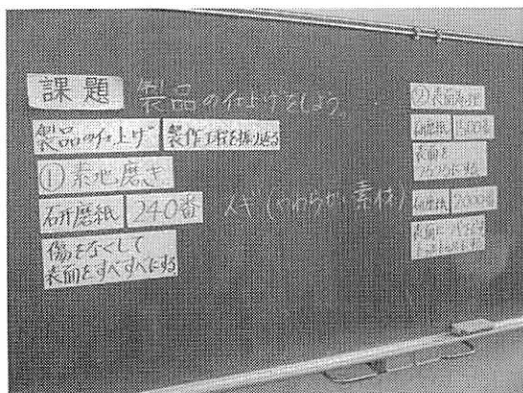 課題 製品の仕上げをしよう。
製品の仕上げ 製作工程を振り返る
①素地磨き
研磨紙 240番 スギ(やわらかい素材)
傷をなくして
表面をすべすべにする
②表面処理
研磨紙
表面を
にする
研磨紙 2000番